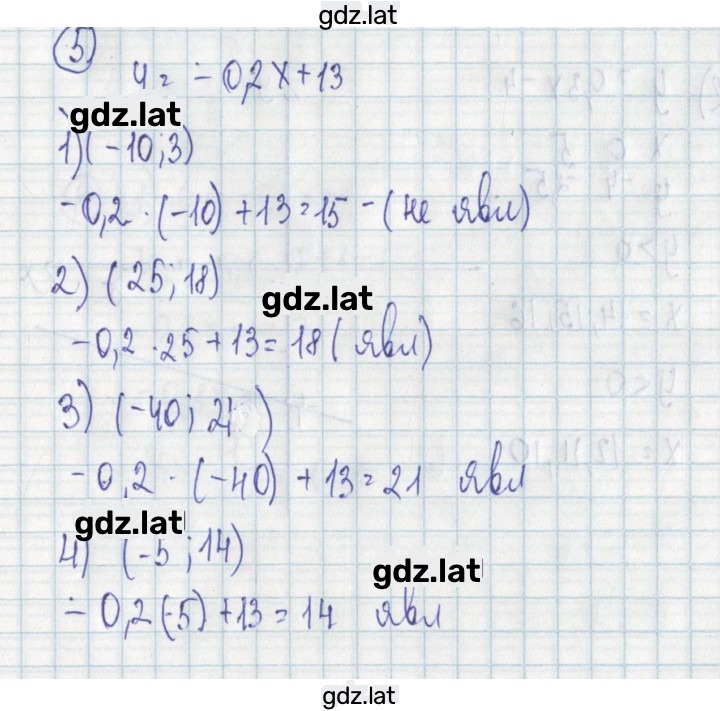 gdz.lat
5)
y = -0,2x+13
gdz.lat
1) (-10;3)
-0,2 · (-10) +13=15 - (не явл)
2) (25;18)
gdz.lat
-0,2 · 25 +13 = 18 (явл)
3) (-40; 21)
-0,2 · (-40) + 13 = 21 явл
gdz.lat
4) (-5 ;14)
gdz.lat
-0,2(-5) +13 = 14 явл
gdz.lat